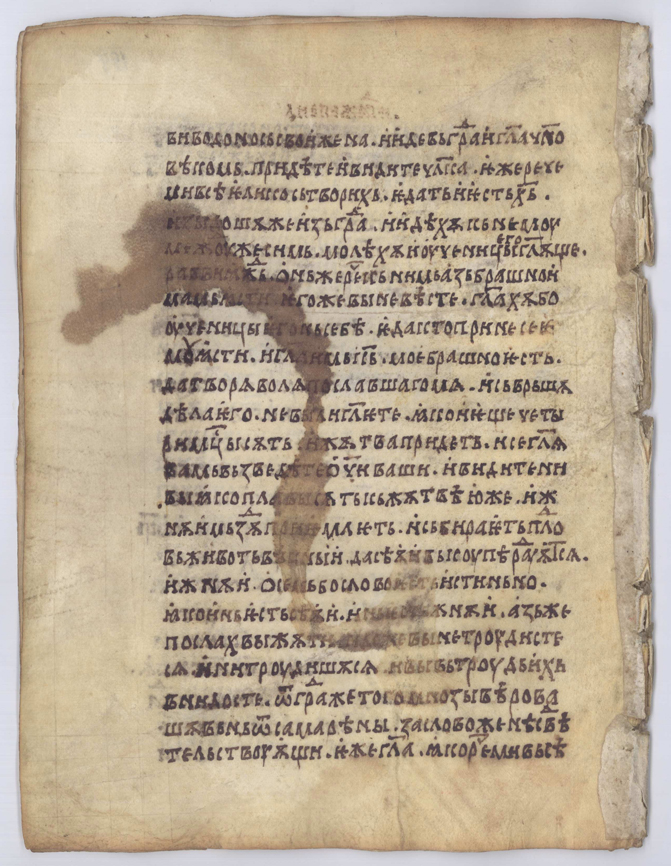 си водоносъ свои жена. и иде вь гра и гла чло
вѣкомь. придѣте и видите члка. иже рече
ми всѣ ѥлико сьтворихь. ѥда тъ ѥсть хь.
изыдошѫ же изь гра. и идѣхѫ кь немоу
междоу же симь. молѣхѫ и оученици его глѫще.
равви ꙗжь. онь же рече имь азь брашно и
мамь ꙗсти. ѥгоже вы не вѣсте. глахѫ бо
оученици ѥго кь себѣ. ѥда кто принесе ѥ
моу ꙗсти. и гла имь ис. мое брашно ѥсть.
да творѫ волѫ пославшаго мѧ. и сьврьшѫ
дѣла ѥго. не вы ли глѥте. ꙗко ѥще четы
ри мци сѫть и жѫтва придеть. и се глѫ
вамь възведѣте очи ваши. и видите ни
вы ꙗко плавы сѫть кь жѫтвѣ юже. и ж
нѫи мьздѫ приѥмлѥть. и сьбираѥть пло
вь животь вѣчныи. да сѣѫи вькоупѣ раѫтсѧ.
и жнѫи. о семь бо слово ѥсть истиньно.
ꙗко инь ѥсть сѣѫи. и инь ѥсть жнѫи. азь же
послах вы жѫть идѣже вы не троудисте
сѧ. ини троудишѫсѧ и вы вь троудь ихь
вьнидосте. ѿ гра же того мнози вѣрова
шѫ вь нь ѿ самарѣны. за слово женѣ свѣ
тельствоуѫщи. ꙗже гла. ꙗко рече ми всѣ